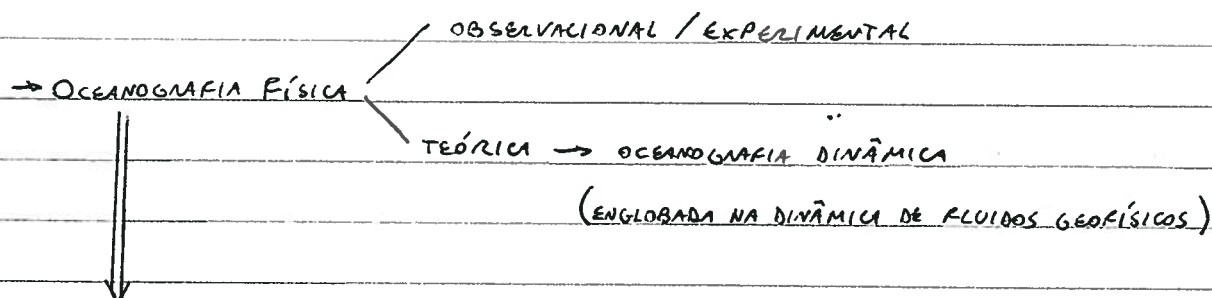 OBSERVACIONAL / EXPERIMENTAL
→ OCEANOGRAFIA FÍSICA
TEÓRICA → OCEANOGRAFIA DINÂMICA
(ENGLOBADA NA DINÂMICA DE FLUIDOS GEOFÍSICOS)